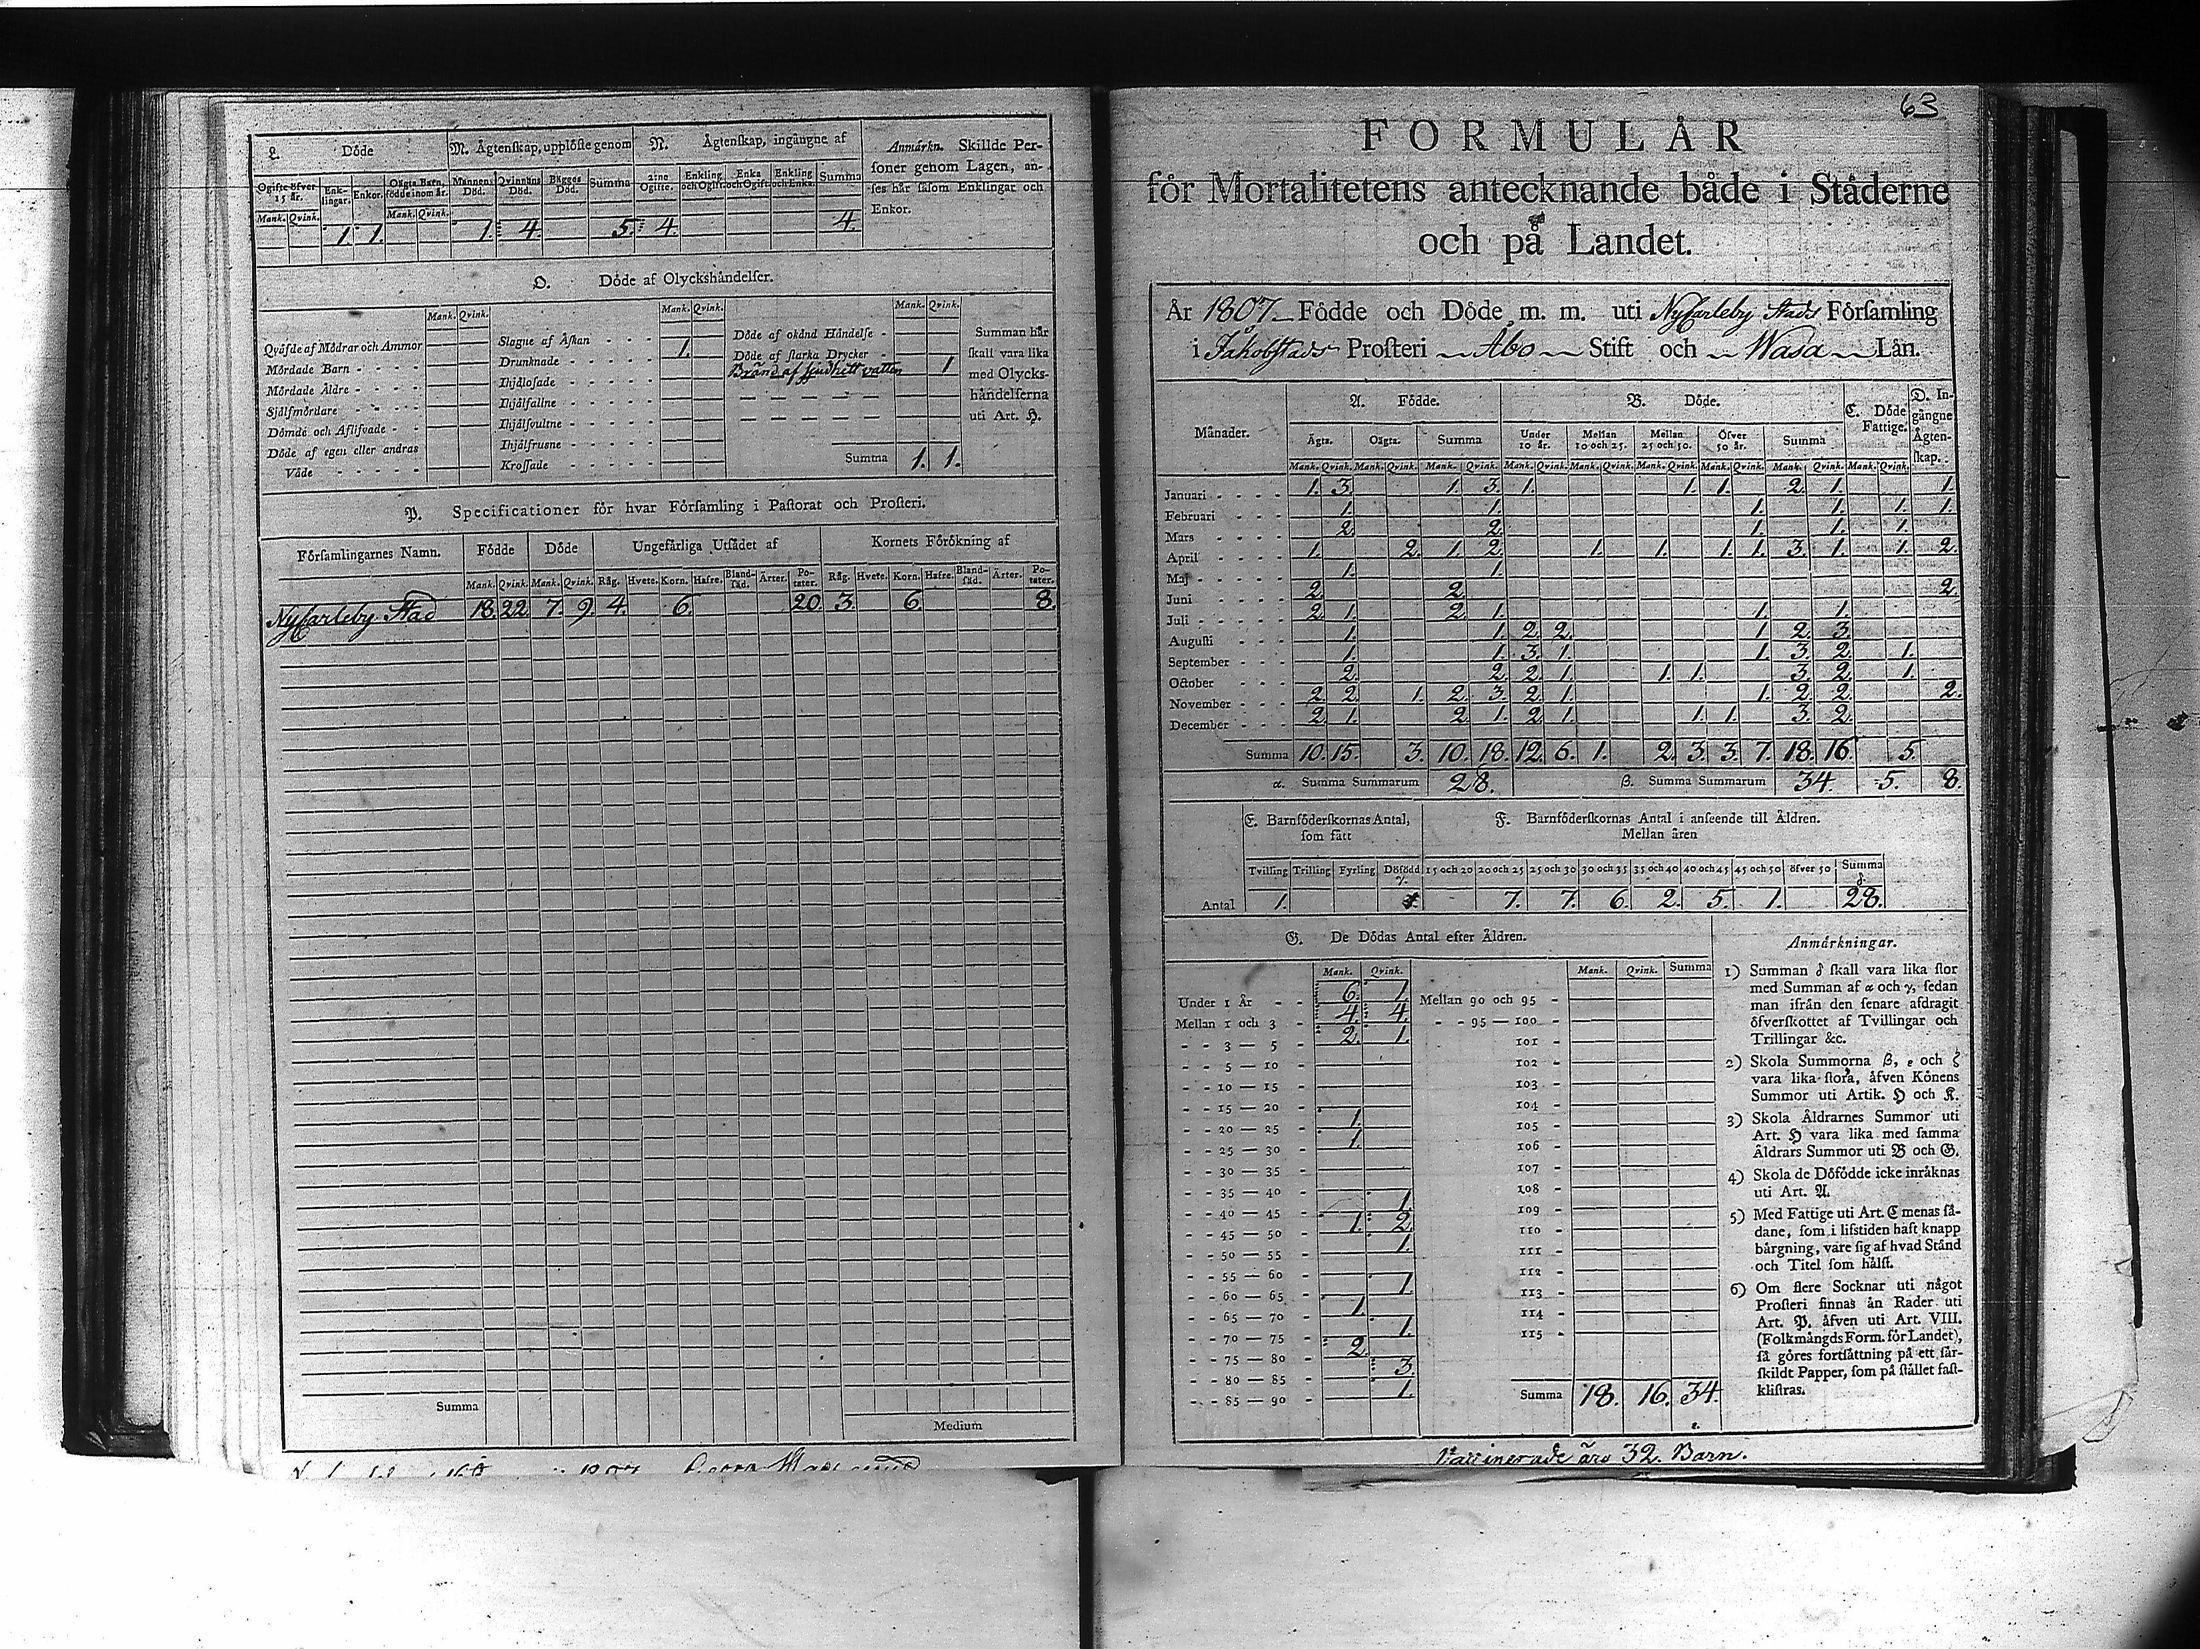 L. Döde
M. Ägtenskap, upplöste genom
N. Ägtenskap, ingångne af
Ogifte öfver 15 år. Enklingar. Enkor. Oägta Barn, födde inom år. Mannens Död. Qvinnans Död. Bägges Död. Summa 2:ne Ogifte. Enkling och Ogift Enka och Ogift Enkling och Enka. Summa
Mank. Qvink. Mank. Qvink.
1. 1. 1. 4. 5. 4. 4.
Anmärkn. Skillde Per-
soner genom Lagen, an-
ses här såsom Enklingar och
Enkor.
O. Döde af Olyckshändelser.
Mank. Qvink. Mank. Qvink. Mank. Qvink.
Qväfde af Mödrar och Ammor
Mördade Barn - - - -
Mördade Äldre - - - -
Sjelfmördare - - - -
Dömde och Aflifvade - -
Döde af egen eller andras
Våde - - - - -
Slagne af Åskan - - -
Drunknade - - - - - 1.
Ihjälosade - - - - -
Ihjälfallne - - - - -
Ihjälsvultne - - - - -
Ihjälfrusne - - - - -
Krossade - - - - -
Döde af okänd Händelse -
Döde af starka Drycker -
Bränd af sjudhett vatten 1
Summa 1. 1.
Summan här
skall vara lika
med Olycks-
händelserna
uti Art. H.
P. Specificationer för hvar Församling i Pastorat och Prosteri.
Församlingarnes Namn. Födde Döde Ungefärliga Utsädet af Kornets Förökning af
Mank. Qvink. Mank. Qvink. Råg. Hvete. Korn. Hafre. Bland-säd. Ärter. Po-tater. Råg. Hvete. Korn. Hafre. Bland-säd. Ärter. Po-tater.
NyCarleby Stad 18. 22. 7. 9. 4. 6. 20. 3. 6. 8.
Summa
Medium
63
FORMULÄR
för Mortalitetens antecknande både i Städerne
och på Landet.
År 1807 Födde och Döde m. m. uti NyCarleby Stads Församling
i Jakobstads Prosteri Åbo Stift och Wasa Län.
Månader. A. Födde. B. Döde. C. Döde Fattige. D. In-gångne Ägten-skap.
Ägta. Oägta. Summa Under 10 år. Mellan 10 och 25. Mellan 25 och 50. Öfver 50 år. Summa
Mank. Qvink. Mank. Qvink. Mank. Qvink. Mank. Qvink. Mank. Qvink. Mank. Qvink. Mank. Qvink. Mank. Qvink. Mank. Qvink.
Januari - - - - 1. 3. 1. 3. 1. 1. 1. 2. 1. 1.
Februari - - - 1. 1. 1. 1. 1. 1.
Mars - - - - 2. 2. 1. 1. 1.
April - - - - 1. 2. 1. 2. 1. 1. 1. 1. 3. 1. 1. 2.
Maj - - - - 1. 1.
Juni - - - - 2. 2. 2.
Juli - - - - 2. 1. 2. 1. 1. 1.
Augusti - - - 1. 1. 2. 2. 1. 2. 3.
September - - - 1. 1. 3. 1. 1. 3. 2. 1.
October - - - 2. 2. 2. 1. 1. 1. 3. 2. 1.
November - - - 2. 2. 1. 2. 3. 2. 1. 1. 2. 2. 2.
December - - - 2. 1. 2. 1. 2. 1. 1. 1. 3. 2.
Summa 10. 15. 3. 10. 18. 12. 6. 1. 2. 3. 3. 7. 18. 16. 5.
α. Summa Summarum 28. β. Summa Summarum 34. 5. 8.
E. Barnföderskornas Antal, som fått
F. Barnföderskornas Antal i anseende till Åldren.
Mellan åren
Tvilling Trilling Fyrling Dödfödd γ. 15 och 20 20 och 25 25 och 30 30 och 35 35 och 40 40 och 45 45 och 50 öfver 50 Summa δ.
Antal 1. 7. 7. 6. 2. 5. 1. 28.
G. De Dödas Antal efter Åldren.
Mank. Qvink. Mank. Qvink. Summa
Under 1 År - - 6. 1.
Mellan 1 och 3 - 4. 4.
- - 3 — 5 - 2. 1.
- - 5 — 10 -
- - 10 — 15 -
- - 15 — 20 -
- - 20 — 25 - 1.
- - 25 — 30 - 1.
- - 30 — 35 -
- - 35 — 40 -
- - 40 — 45 - 1.
- - 45 — 50 - 1. 2.
- - 50 — 55 - 1.
- - 55 — 60 -
- - 60 — 65 - 1.
- - 65 — 70 - 1.
- - 70 — 75 - 1.
- - 75 — 80 - 2.
- - 80 — 85 - 3.
- - 85 — 90 - 1.
Mellan 90 och 95 -
- - 95 — 100 -
101 -
102 -
103 -
104 -
105 -
106 -
107 -
108 -
109 -
110 -
111 -
112 -
113 -
114 -
115 -
Summa 18. 16. 34.
ε.
Anmärkningar.
1) Summan δ skall vara lika stor
med Summan af α och γ, sedan
man ifrån den senare afdragit
öfverskottet af Tvillingar och
Trillingar &c.
2) Skola Summorna β, ε och ζ
vara lika stora, äfven Könens
Summor uti Artik. H och K.
3) Skola Åldrarnes Summor uti
Art. H vara lika med samma
Åldrars Summor uti B och G.
4) Skola de Dödfödde icke inräknas
uti Art. A.
5) Med Fattige uti Art. C menas så-
dane, som i lifstiden haft knapp
bärgning, vare sig af hvad Stånd
och Titel som hälst.
6) Om flere Socknar uti något
Prosteri finnas än Rader uti
Art. P. äfven uti Art. VIII.
(Folkmängds Form. för Landet),
så göres fortsättning på ett sär-
skildt Papper, som på stället fast-
klistras.
Vaccinerade äro 32. Barn.